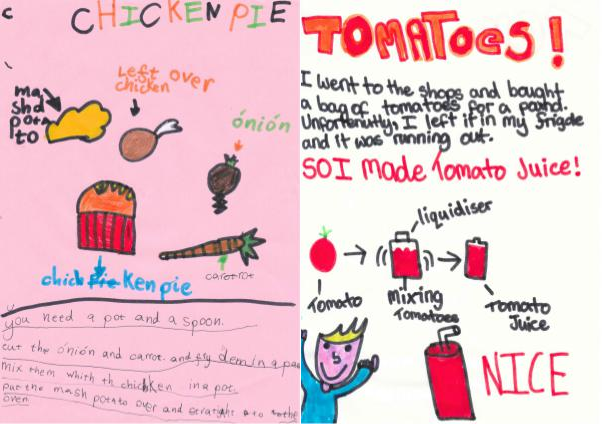 CHICKEN PIE
mashd potato
Left over chicken
ónión
carotrot
chick pie Ken pie
you need a pot and a spoon.
cut the ónión and carrot. and fry dem in a pan
mix them whith th chicken in a pot.
put the mash potato over and straight to the
oven
TOMATOES!
I went to the shops and bought
a bag of tomatoes for a pound.
Unfortenutly, I left it in my frigde
and it was running out.
SO I Made Tomato Juice!
liquidiser
Tomato
mixing
Tomatoes
Tomato
Juice
NICE